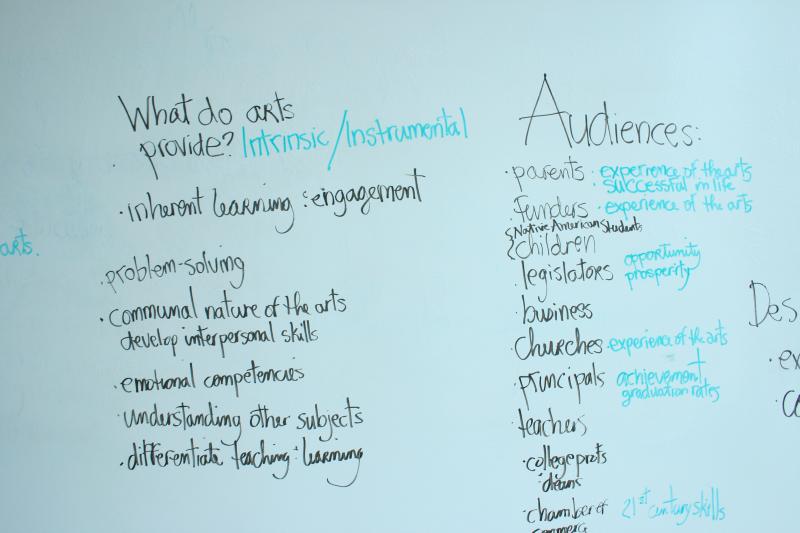 What do arts
provide? Intrinsic/Instrumental
· inherent learning & engagement
· problem-solving
· communal nature of the arts
develop interpersonal skills
· emotional competencies
· understanding other subjects
· differentiate teaching & learning
arts.
Audiences:
· parents · experience of the arts
· successful in life
· funders · experience of the arts
{Native American Students
{children
· legislators opportunity
prosperity
· business
· churches experience of the arts
· principals achievement
graduation rates
· teachers
· college profs
· deans
· chamber of 21st century skills
commerce
Des
· ex